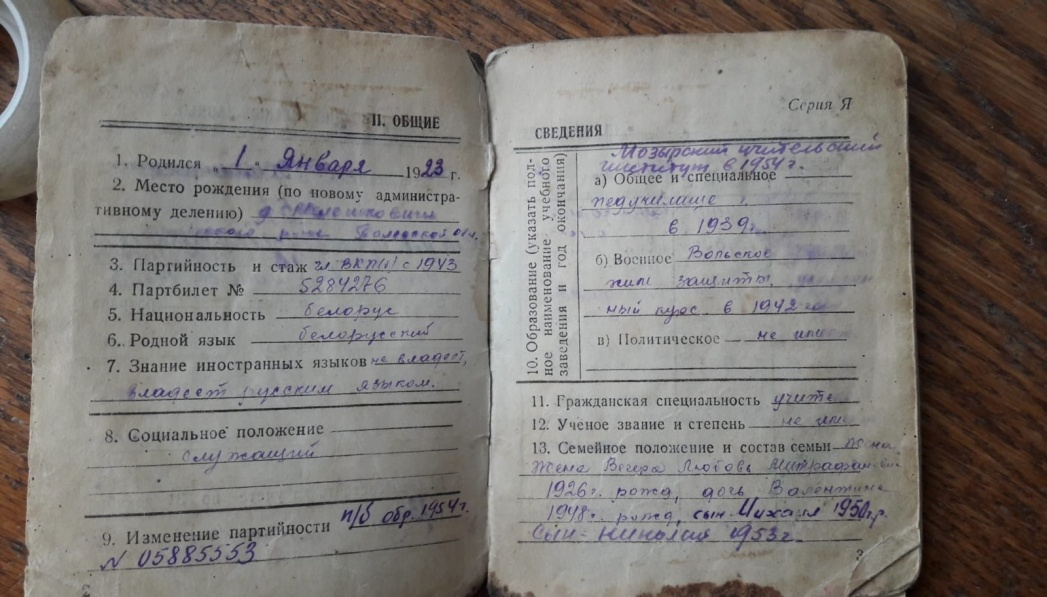 II. ОБЩИЕ
1. Родился „ 1 " Января 1923 г.
2. Место рождения (по новому администра-
тивному делению) д.
3. Партийность и стаж с 1943
4. Партбилет № 5284276
5. Национальность белорус
6. Родной язык белорусский
7. Знание иностранных языков не владеет,
владеет русским языком.
8. Социальное положение
служащий
9. Изменение партийности п/б обр. 1954 г.
N 05885553
Серия Я
СВЕДЕНИЯ
10. Образование (указать пол-
ное наименование учебного
заведения и год окончания)
Мозырский учительский
институт в 1954 г.
а) Общее и специальное
педучилище
в 1939 г.
б) Военное Вольское
хим защиты,
курс в 1942
в) Политическое не
11. Гражданская специальность
12. Учёное звание и степень не
13. Семейное положение и состав семьи
жена Вегера Любовь
1926 г. рожд, дочь Валентина
1948 г. рожд, сын Михаил 1950 г.р.
Сын Николай 1953 г.
3